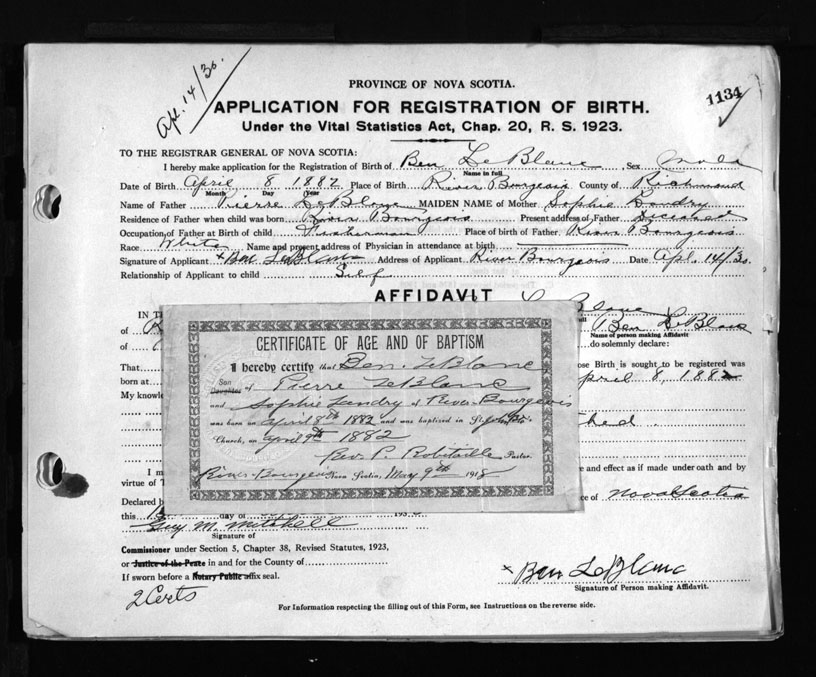 Apl. 14/30.
1134
PROVINCE OF NOVA SCOTIA.
APPLICATION FOR REGISTRATION OF BIRTH.
Under the Vital Statistics Act, Chap. 20, R. S. 1923.
TO THE REGISTRAR GENERAL OF NOVA SCOTIA:
I hereby make application for the Registration of Birth of Ben LeBlanc Sex Male
Name in full
Date of Birth April 8 1882 Place of Birth River Bourgeois County of Richmond
Month Day Year
Name of Father Pierre LeBlanc MAIDEN NAME of Mother Sophie Landry
Residence of Father when child was born River Bourgeois Present address of Father Deceased
Occupation of Father at Birth of child Fisherman Place of birth of Father River Bourgeois
Race White Name and present address of Physician in attendance at birth
Signature of Applicant x Ben LeBlanc Address of Applicant River Bourgeois Date Apl. 14/30.
Relationship of Applicant to child Self
AFFIDAVIT
IN T LeBlanc
of Ben LeBlanc
Name of person making Affidavit
of do solemnly declare:
That se Birth is sought to be registered was
born at April 8, 1882
My knowle
CERTIFICATE OF AGE AND OF BAPTISM
I hereby certify that Ben. LeBlanc
Son
Daughter of Pierre LeBlanc
and Sophie Landry of River-Bourgeois
was born on April 8th 1882 and was baptized in St
Church, on April 9th 1882
Rev. P. Robitaille Pastor
River-Bourgeois Nova Scotia, May 9th 1918
I m e and effect as if made under oath and by
virtue of T
Declared b ce of Nova Scotia
this day of 193
Guy M. Mitchell
Signature of
Commissioner under Section 5, Chapter 38, Revised Statutes, 1923,
or Justice of the Peace in and for the County of
If sworn before a Notary Public affix seal.
2 Certs
x Ben LeBlanc
Signature of Person making Affidavit.
For Information respecting the filling out of this Form, see Instructions on the reverse side.